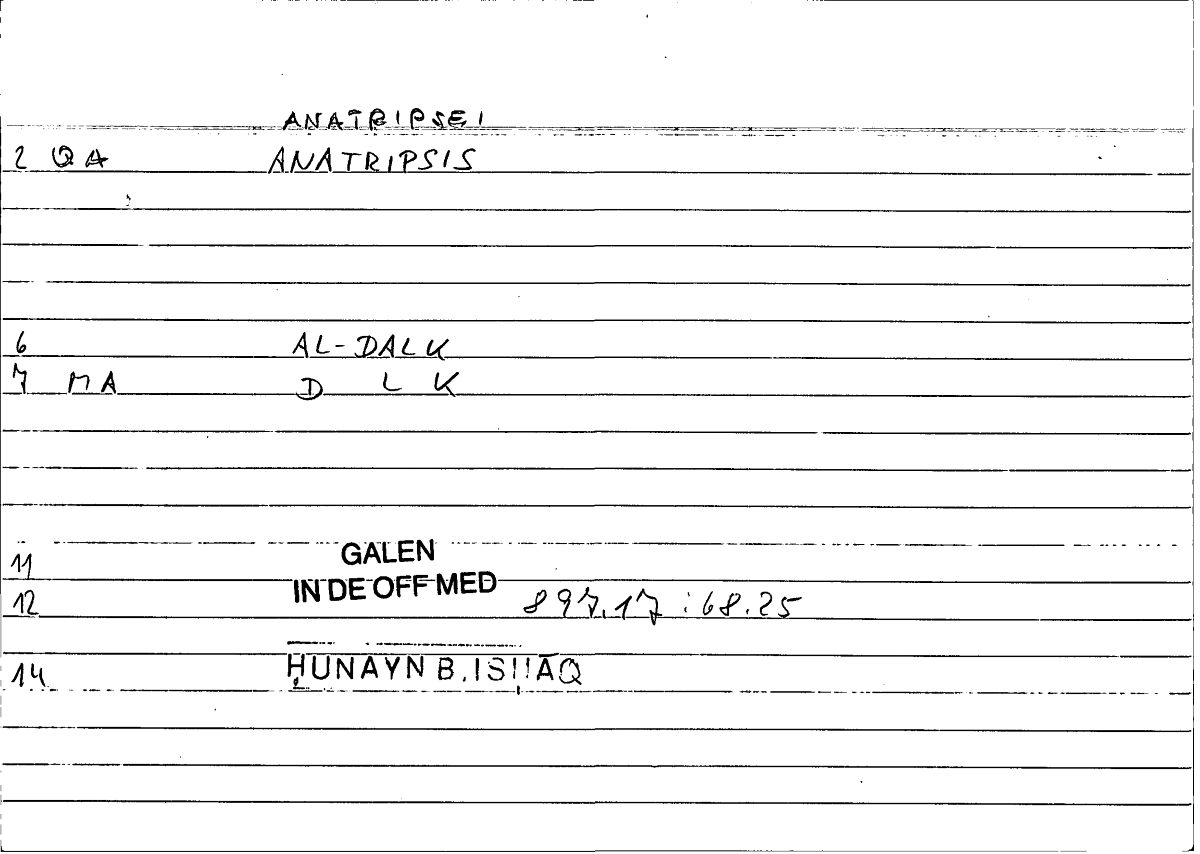 ANATRIPSEI
2 QA ANATRIPSIS
6 AL-DALK
7 MA D L K
11 GALEN
12 IN DE OFF MED 897.17 : 68.25
14 ḤUNAYN B. ISḤĀQ